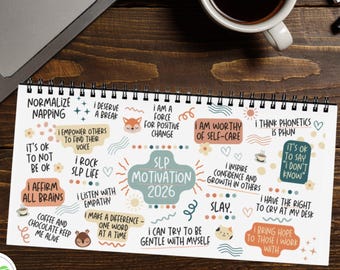 NORMALIZE
NAPPING
I DESERVE
A BREAK
I AM A
FORCE
FOR POSITIVE
CHANGE
I AM WORTHY
OF SELF-CARE
I THINK PHONETICS
IS PHUN
I EMPOWER OTHERS
TO FIND THEIR
VOICE
IT'S OK
TO NOT
BE OK
I ROCK
SLP LIFE
SLP
MOTIVATION
2026
I INSPIRE
CONFIDENCE
AND GROWTH IN OTHERS
IT'S OK
TO SAY
"I DON'T
KNOW"
I AFFIRM
ALL BRAINS
I LISTEN WITH
EMPATHY
SLAY.
I HAVE THE RIGHT
TO CRY AT MY DESK
COFFEE AND
CHOCOLATE KEEP
ME ALIVE
I MAKE A DIFFERENCE -
ONE WORD
AT A TIME
I CAN TRY TO BE
GENTLE WITH MYSELF
I BRING HOPE
TO THOSE I WORK
WITH